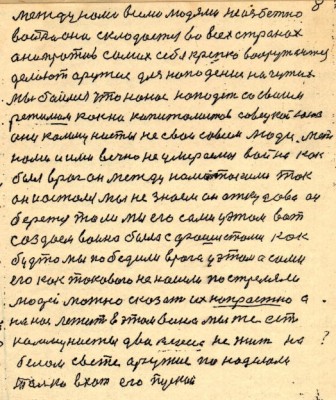 8
между нами всеми людями неизбетно
война она складоетсе во всех странах
они против самих себя крепко вооружаютце
делоют оружие для нападения на чужих
мы баимся што на нас нападут со своим
режимом как на капиталистов советской
они коммунисты не свои совсем люди.
нами и ими вечно не умераема война как
был враг он между намы таким так
он и остался мы не знаем он откудова он
беретсе то ли мы его сами утом вот
создаем война была с фашистоми как
будто мы победили врага у этом а сами
его как такового не нашли постреляли
людей можно сказать их напрастно а
на нас лежит в этом вина мы же есть
коммунисты два класса не жит на ?
белом свете аружие понаделали
только в ход его пускай